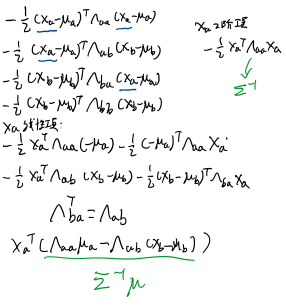 -½ (xₐ-μₐ)ᵀΛₐₐ (xₐ-μₐ)
-½ (xₐ-μₐ)ᵀΛₐb (x_b-μ_b)
-½ (x_b-μ_b)ᵀΛ_ba (xₐ-μₐ)
-½ (x_b-μ_b)ᵀΛ_bb (x_b-μ_b)
xₐ 2阶项
-½ xₐᵀΛₐₐxₐ
Σ⁻¹
xₐ 1阶项:
-½ xₐᵀΛₐₐ(-μₐ)-½ (-μₐ)ᵀΛₐₐxₐ
-½ xₐᵀΛₐb (x_b-μ_b)-½(x_b-μ_b)ᵀΛ_ba xₐ
Λ_baᵀ=Λ_ab
xₐᵀ(Λₐₐμₐ-Λₐb (x_b-μ_b))
Σ⁻¹μ